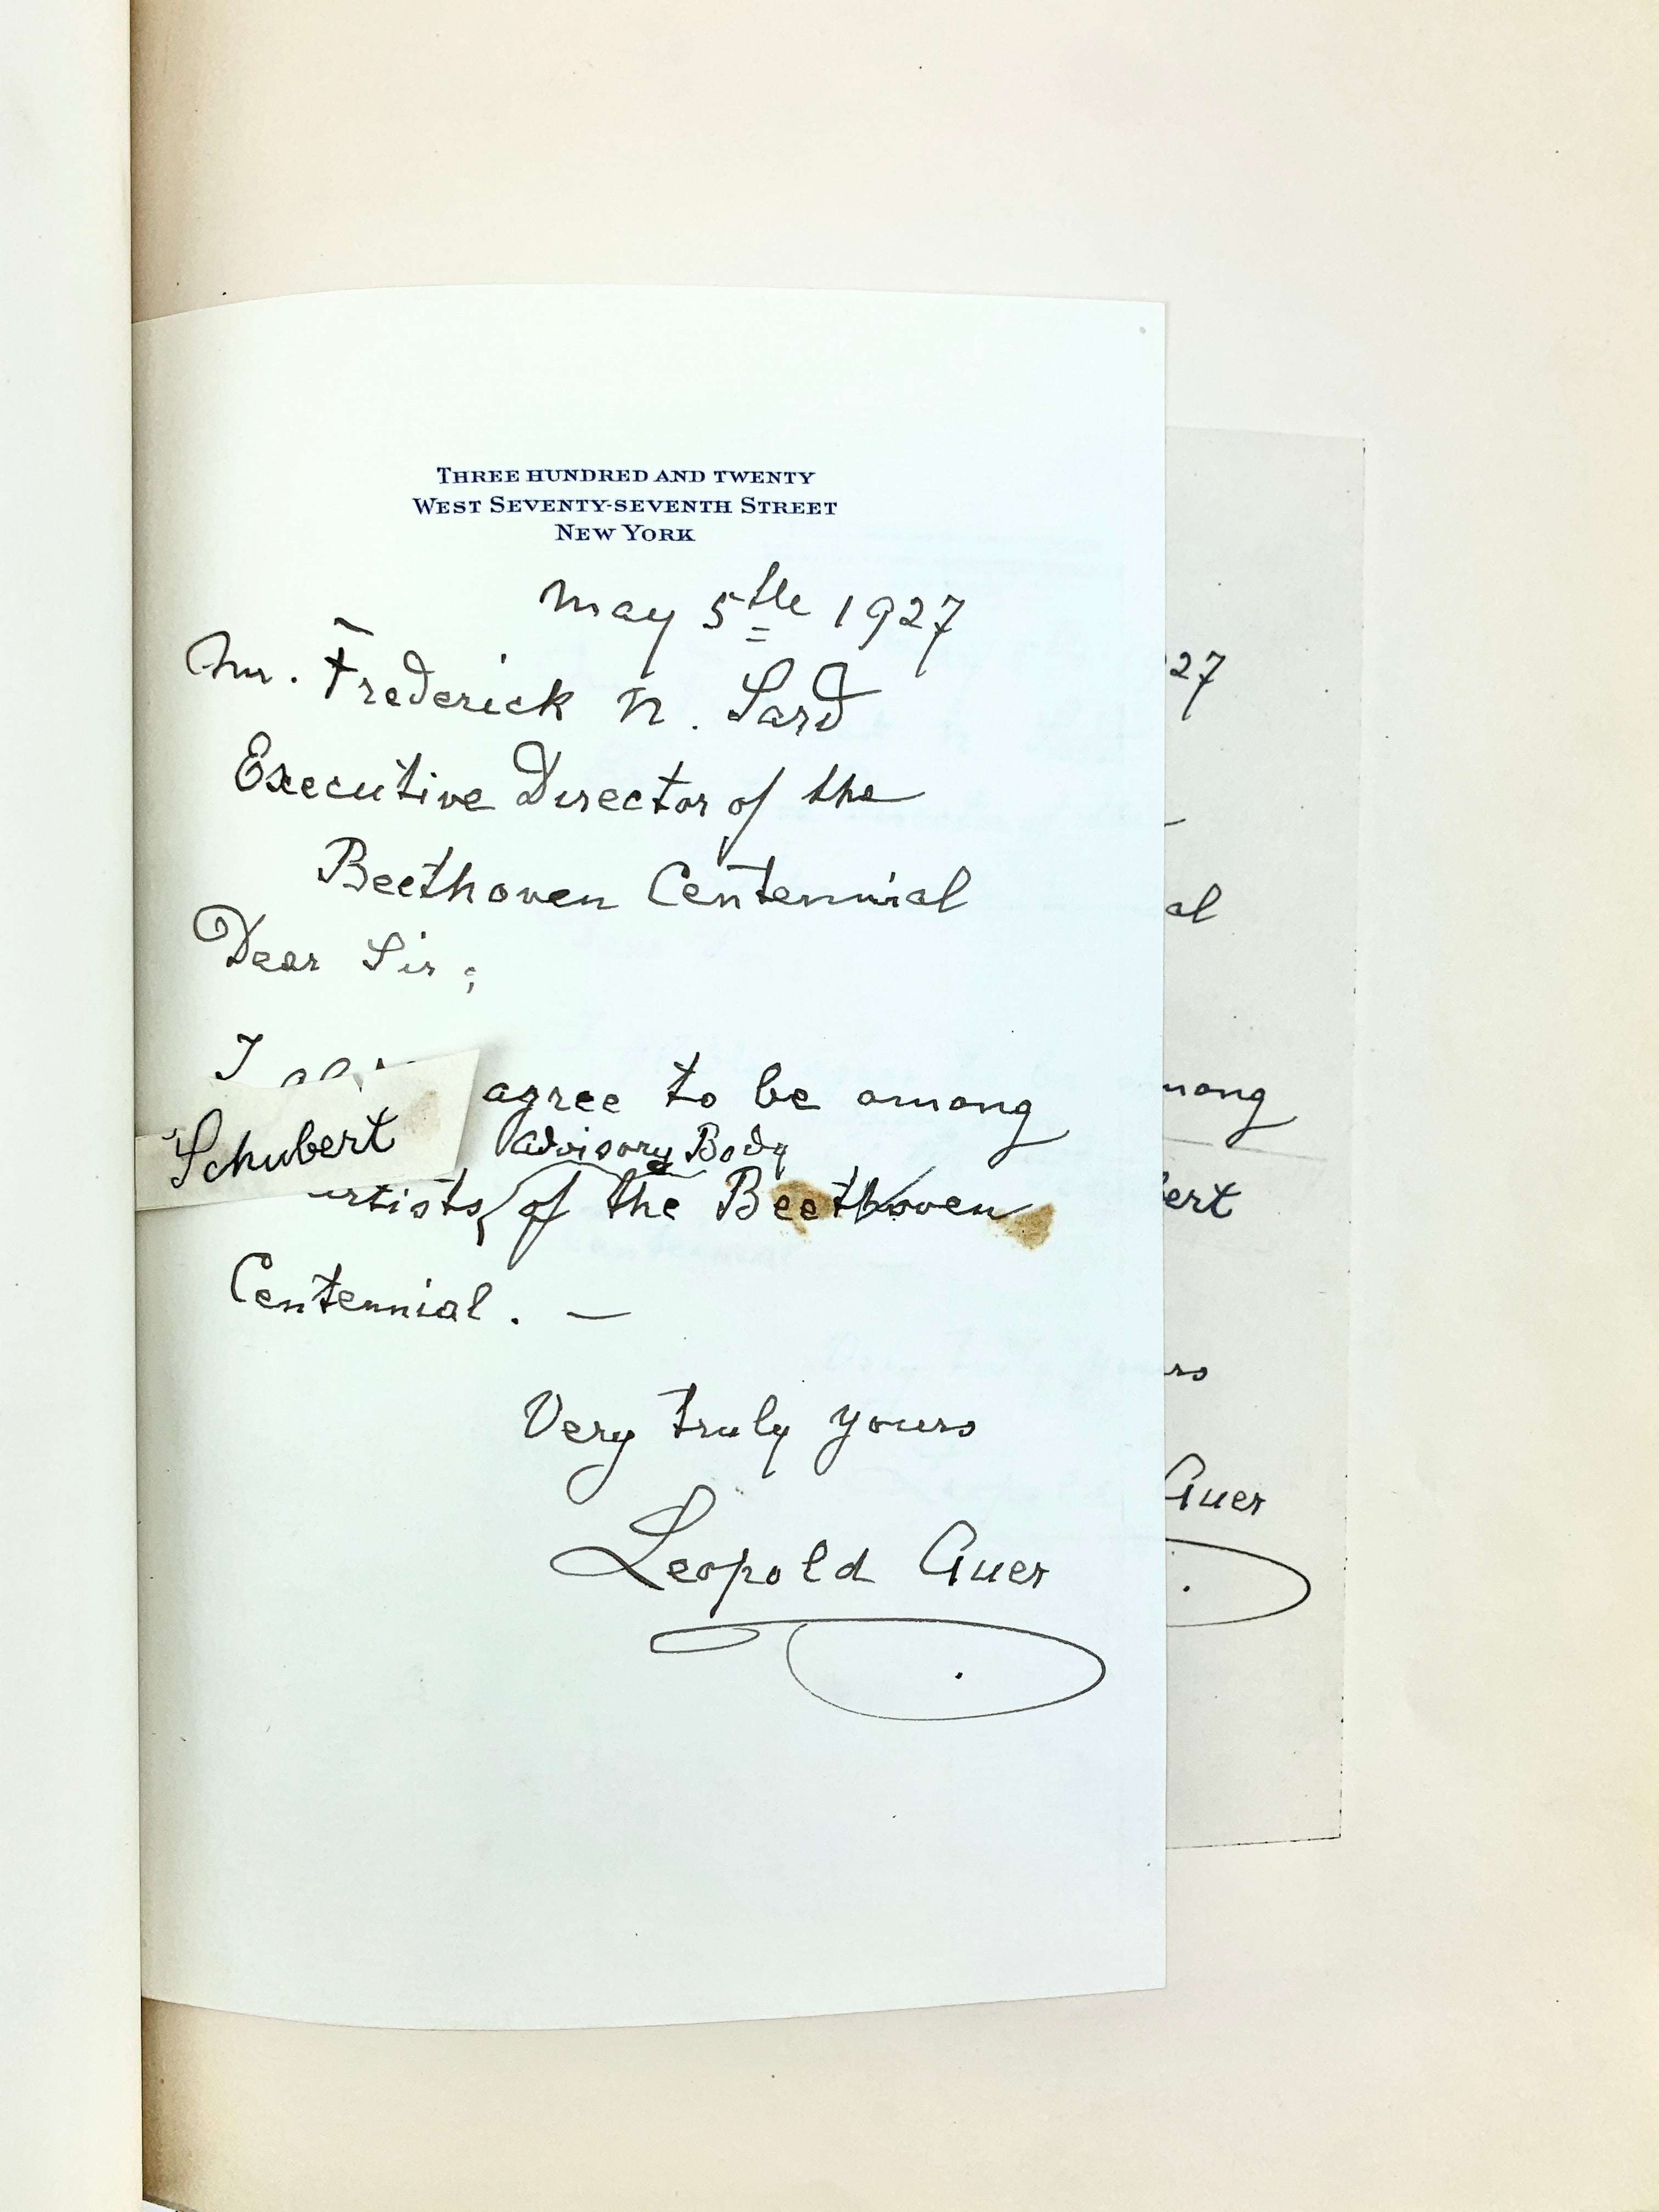 THREE HUNDRED AND TWENTY
WEST SEVENTY-SEVENTH STREET
NEW YORK
May 5th 1927
Mr. Frederick N. Sard
Executive Director of the
Beethoven Centennial
Dear Sir;
I agree to be among
Schubert
Advisory Body
artists of the Beethoven
Centennial. —
Very truly yours
Leopold Auer
27
al
mong
bert
rs
Auer